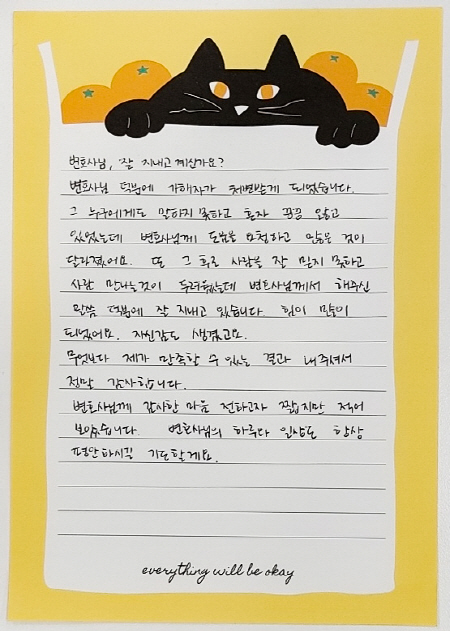 변호사님, 잘 지내고 계신가요?
변호사님 덕분에 가해자가 처벌받게 되었습니다.
그 누구에게도 말하지 못하고 혼자 끙끙 앓고
있었는데 변호사님께 도움을 요청하고 많은 것이
달라졌어요. 또 그 후로 사람을 잘 믿지 못하고
사람 만나는것이 두려웠는데 변호사님께서 해주신
말씀 덕분에 잘 지내고 있습니다. 힘이 많이
되었어요. 자신감도 생겼고요.
무엇보다 제가 만족할 수 있는 결과 내주셔서
정말 감사합니다.
변호사님께 감사한 마음 전하고자 짧지만 적어
보았습니다. 변호사님의 하루와 일상도 항상
평안하시길 기도할게요.
everything will be okay